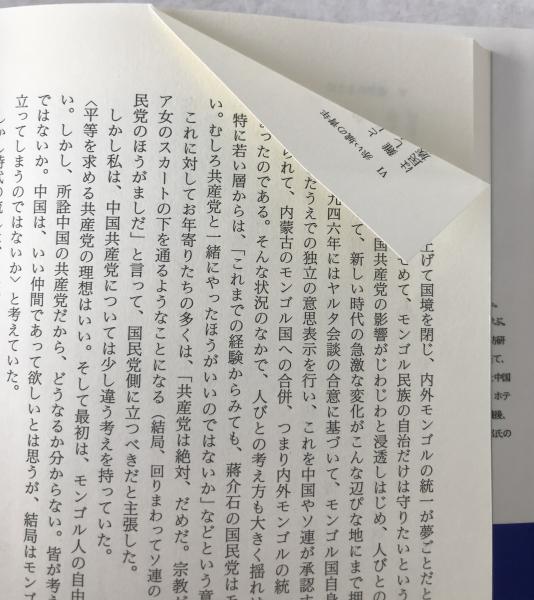 上げて国境を閉じ、内外モンゴルの統一が夢ごとだと
めて、モンゴル民族の自治だけは守りたいという
国共産党の影響がじわじわと浸透しはじめ、人びとの
て、新しい時代の急激な変化がこんな辺ぴな地にまで押
九四六年にはヤルタ会談の合意に基づいて、モンゴル国自身
たうえでの独立の意思表示を行い、これを中国やソ連が承認す
られて、内蒙古のモンゴル国への合併、つまり内外モンゴルの統
ったのである。そんな状況のなかで、人びとの考え方も大きく揺れは
特に若い層からは、「これまでの経験からみても、蔣介石の国民党はモ
い。むしろ共産党と一緒にやったほうがいいのではないか」などという意
これに対してお年寄りたちの多くは、「共産党は絶対、だめだ。宗教が
ア女のスカートの下を通るようなことになる（結局、回りまわってソ連の
民党のほうがましだ」と言って、国民党側に立つべきだと主張した。
しかし私は、中国共産党については少し違う考えを持っていた。
〈平等を求める共産党の理想はいい。そして最初は、モンゴル人の自由
い。しかし、所詮中国の共産党だから、どうなるか分からない。皆が考え
ではないか。中国は、いい仲間であって欲しいとは思うが、結局はモンゴ
立ってしまうのではないか〉と考えていた。
VI 赤い城の青年
は難しと
民族
防研
て、
中国
ホテ
後、
氏の